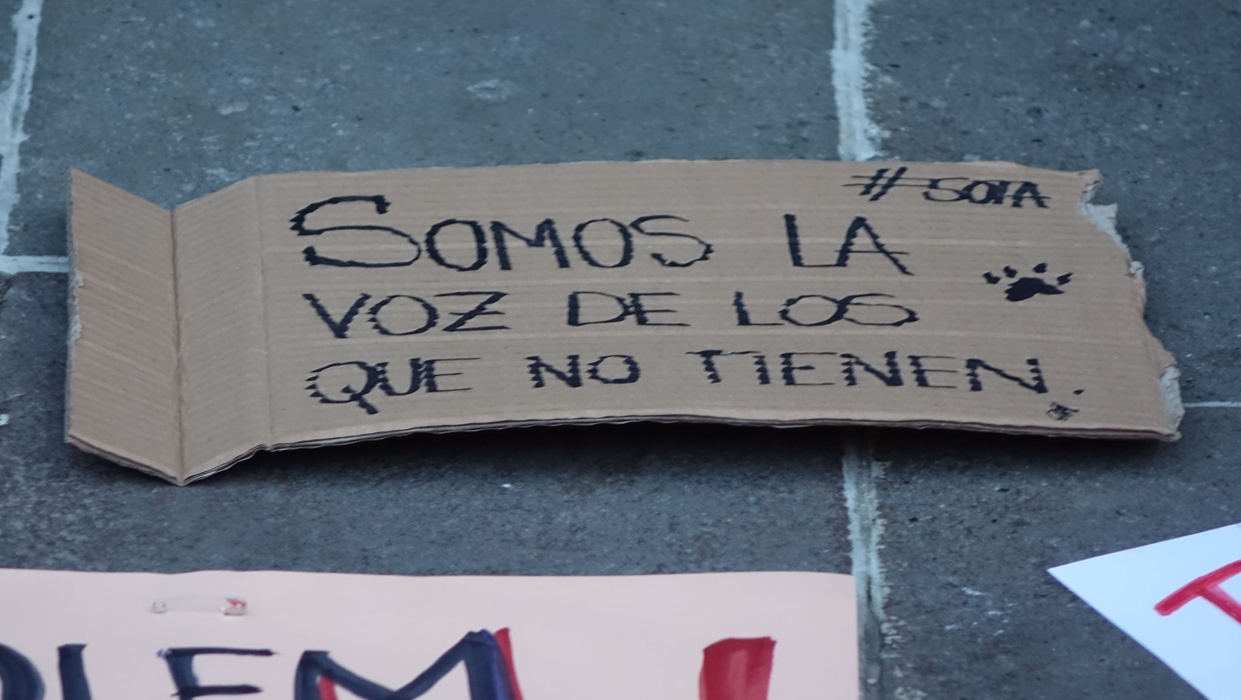 #SOFA
SOMOS LA
VOZ DE LOS
QUE NO TIENEN.